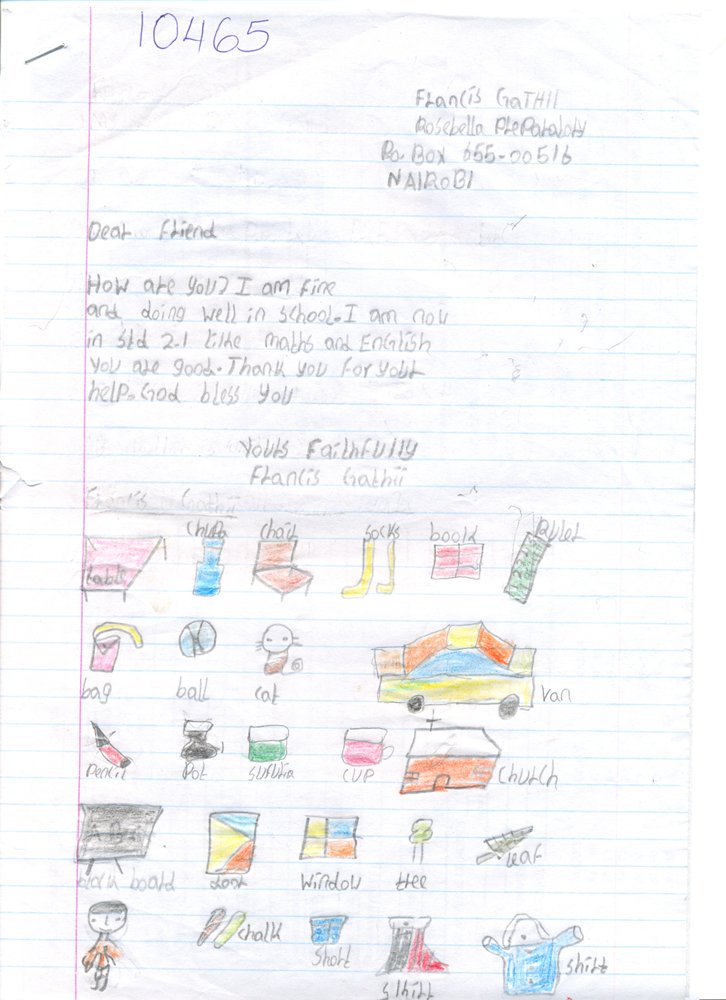 10465
Francis GaTHII
Rosebella PreParatory
Po Box 655-00516
NAIROBI
Dear friend
How are you? I am fine
and doing well in school. I am now
in std 2. I like maths and English
you are good. Thank you for your
help. God bless you
Yours Faithfully
Francis Gathii
Francis Gathii
table chupa chair socks book Ruler
bag ball cat van
Pencil Pot sufuria cup church
black board door window tree leaf
chalk short skirt shirt